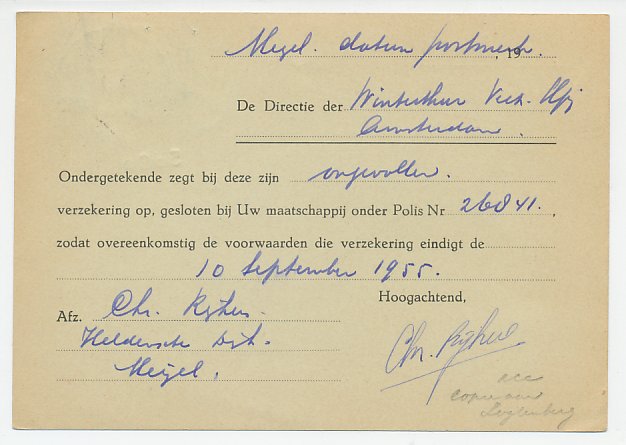 Meyel. datum postmerk. , 19
De Directie der Winterthur Verz. Mpij
Amsterdam.
Ondergetekende zegt bij deze zijn ongevallen.
verzekering op, gesloten bij Uw maatschappij onder Polis Nr 26841. ,
zodat overeenkomstig de voorwaarden die verzekering eindigt de
10 September 1955.
Hoogachtend,
Afz. Chr.
Heldensche Dyk.
Meijel.
Chr.